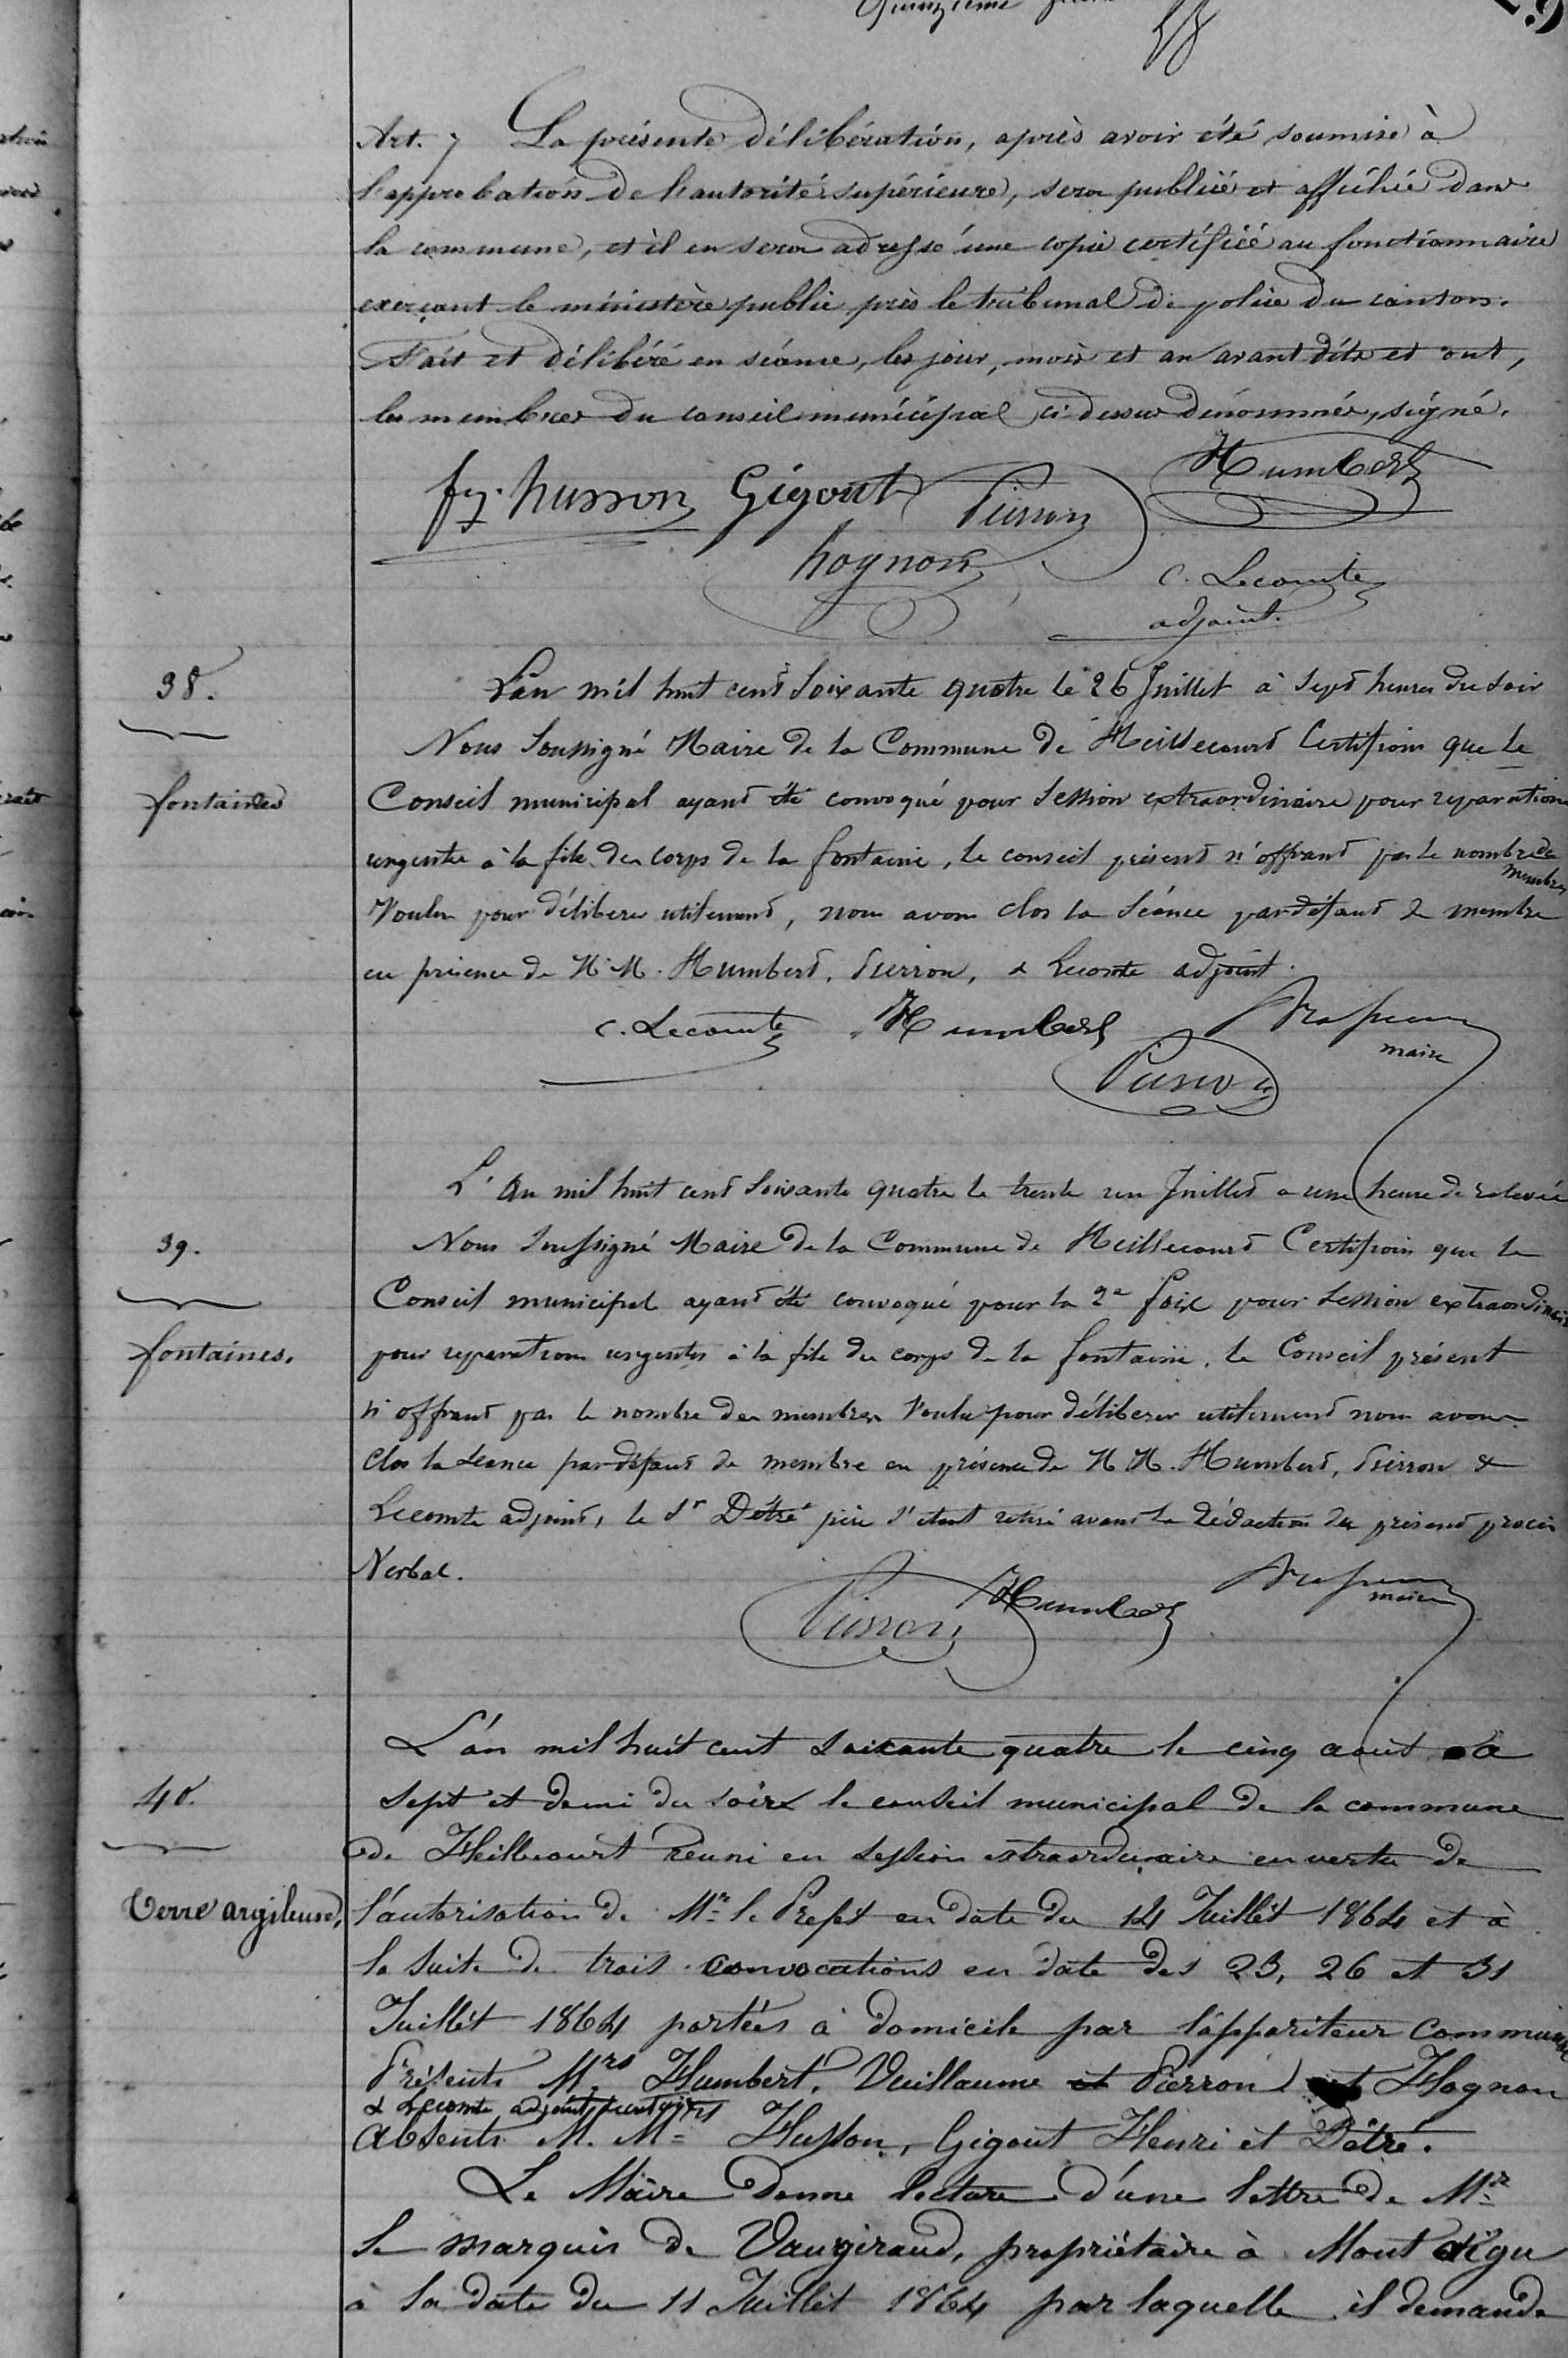 Quinzième
Art. 7 La présente délibération, après avoir été soumise à
l'approbation de l'autorité supérieure, sera publiée et affichée dans
la commune, et il en sera adressé une copie certifiée au fonctionnaire
exerçant le ministère public près le tribunal de police du canton.
Fait et délibéré en séance, les jour, mois et an avant dits et ont,
les membres du conseil municipal ci-dessus dénommés, signé.
husson Gigout Pierron Humbert
hognon C. Lecomte
adjoint.
38.
fontaines
L'an mil huit cent soixante quatre le 26 Juillet à sept heures du soir
Nous soussigné Maire de la Commune de Heillecourt Certifions que le
Conseil municipal ayant été convoqué pour session extraordinaire pour reparations
urgentes à la file des corps de la fontaine, le conseil présent n'offrant pas le nombre de
membres
voulu pour déliberer utilement, nous avons clos la séance par défaut de membre
en présence de M.M. Humbert, Pierron, & Lecomte adjoint.
C. Lecomte Humbert
maire
Pierron
39.
fontaines.
L'an mil huit cent soixante quatre le trente un Juillet a une heure de relevée
Nous soussigné Maire de la Commune de Heillecourt Certifions que le
Conseil municipal ayant été convoqué pour la 2e fois pour session extraordinaire
pour reparations urgentes à la file des corps de la fontaine, le Conseil présent
n'offrant pas le nombre des membres voulu pour déliberer utilement nous avons
clos la séance par défaut de membre en présence de M M. Humbert, Pierron &
Lecomte adjoint, le Sr Détré père s'étant retiré avant la rédaction du présent procès
Verbal.
Pierron Humbert
maire
40.
Terre argileuse,
L'an mil huit cent soixante quatre le cinq aout a
sept et demi du soir le conseil municipal de la commune
de Heillecourt reuni en session extraordinaire en vertu de
l'autorisation de Mr le Prefet en date du 14 Juillet 1864 et à
la suite de trois convocations en date des 23, 26 et 31
Juillet 1864 portées à domicile par l'appariteur Communal
Présents Mrs Humbert, Vuillaume et Pierron et Hognon
& Lecomte adjoint
absents M. M. Husson, Gigout Henri et Détré.
Le Maire donne lecture d'une lettre de Mr
le marquis de Vaugiraud, propriétaire à Mont aigu
à la date du 11 Juillet 1864 par laquelle il demande